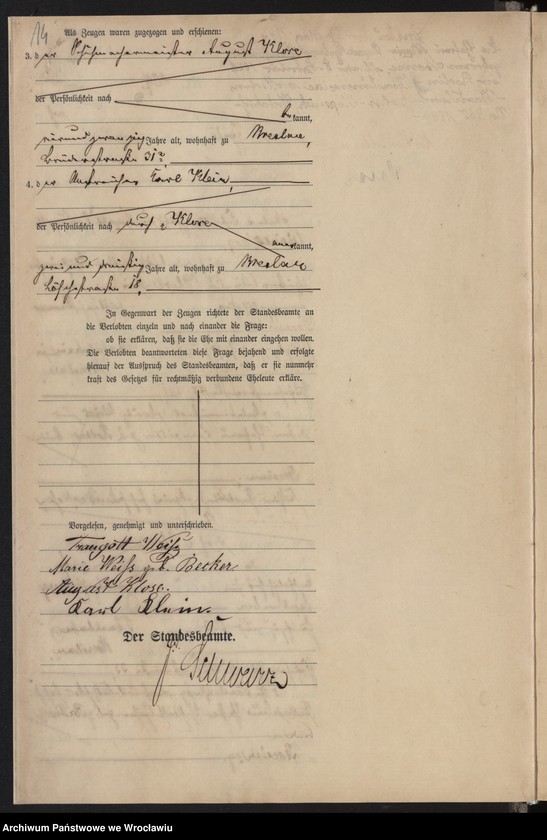 14
Als Zeugen waren zugezogen und erschienen:
3. der Schuhmachermeister August Klose
der Persönlichkeit nach
bekannt,
vierundzwanzig Jahre alt, wohnhaft zu Breslau,
Brüderstraße 31
4. der Anstreicher Karl Klein,
der Persönlichkeit nach durch Klose
anerkannt,
zwei und dreißig Jahre alt, wohnhaft zu Breslau
Löschstraße 18,
In Gegenwart der Zeugen richtete der Standesbeamte an
die Verlobten einzeln und nach einander die Frage:
ob sie erklären, daß sie die Ehe mit einander eingehen wollen.
Die Verlobten beantworteten diese Frage bejahend und erfolgte
hierauf der Ausspruch des Standesbeamten, daß er sie nunmehr
kraft des Gesetzes für rechtmäßig verbundene Eheleute erkläre.
Vorgelesen, genehmigt und unterschrieben.
Traugott Weiß
Marie Weiß geb. Becker
August Klose.
Karl Klein.
Der Standesbeamte.
Archiwum Państwowe we Wrocławiu